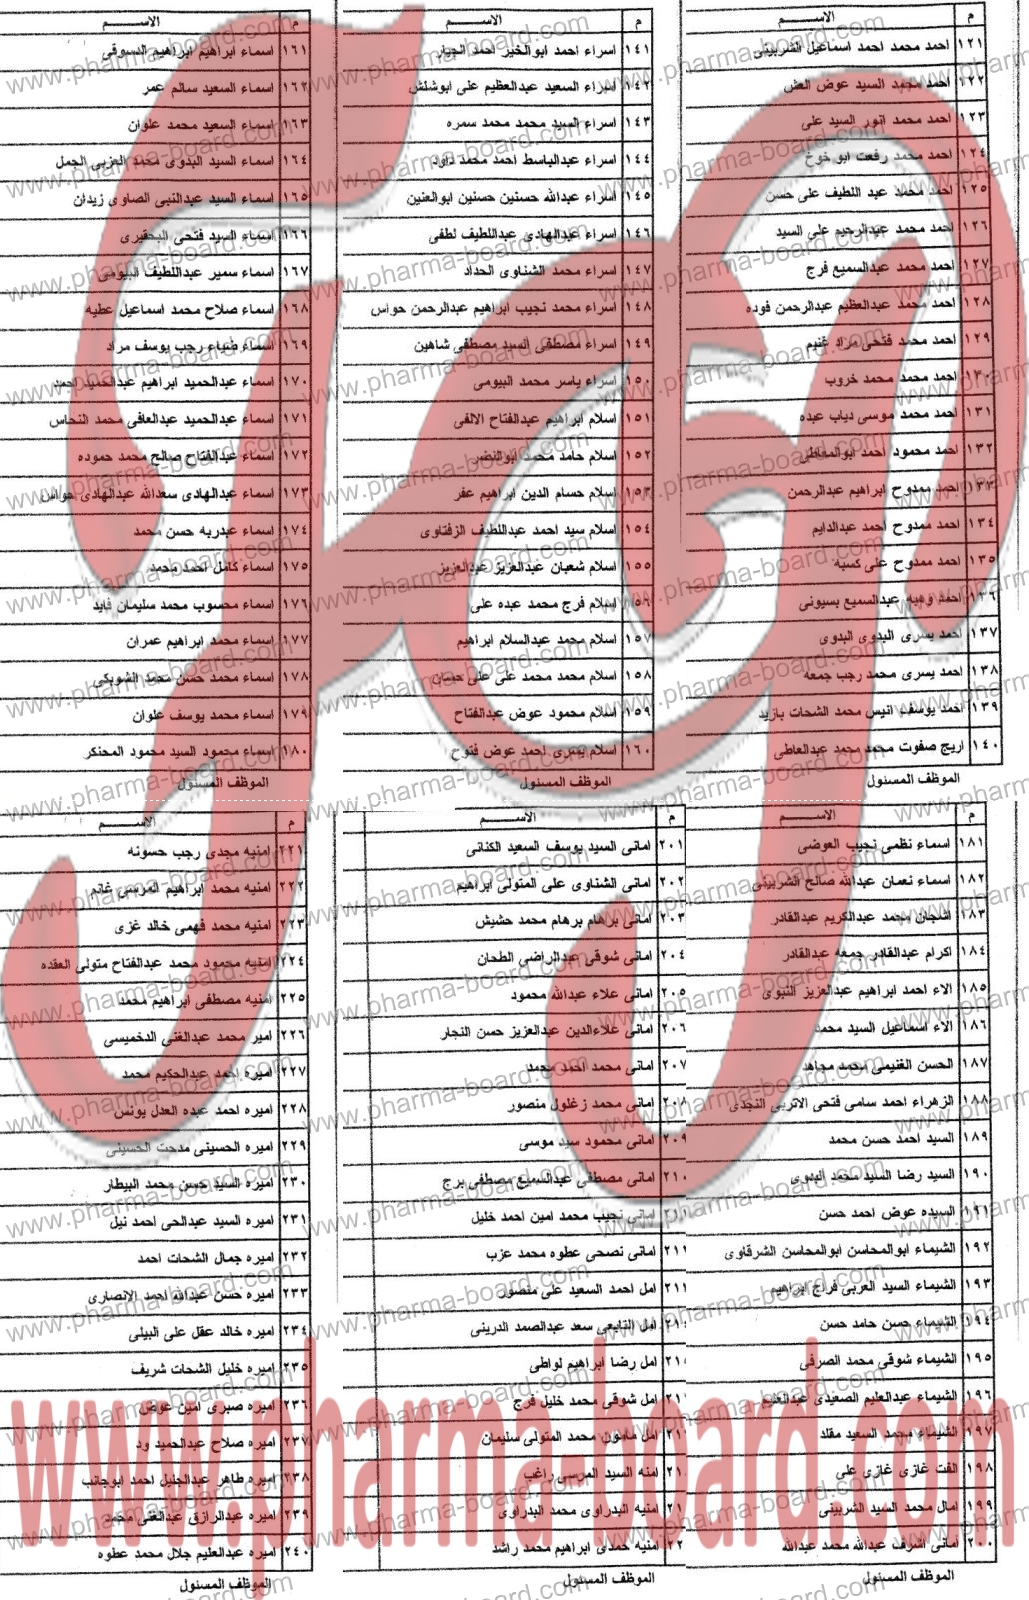 م الاســـــــم
١٢١ احمد محمد احمد اسماعيل الشربينى
١٢٢ احمد محمد السيد عوض العش
١٢٣ احمد محمد انور السيد على
١٢٤ احمد محمد رفعت ابو خوخ
١٢٥ احمد محمد عبد اللطيف على حسن
١٢٦ احمد محمد عبدالرحيم على السيد
١٢٧ احمد محمد عبدالسميع فرج
١٢٨ احمد محمد عبدالعظيم عبدالرحمن فوده
١٢٩ احمد محمد فتحى مراد غنيم
١٣٠ احمد محمد محمد خروب
١٣١ احمد محمد موسى دياب عبده
١٣٢ احمد محمود احمد ابوالمعاطى
١٣٣ احمد ممدوح ابراهيم عبدالرحمن
١٣٤ احمد ممدوح احمد عبدالدايم
١٣٥ احمد ممدوح على كسبه
١٣٦ احمد وهبه عبدالسميع بسيونى
١٣٧ احمد يسرى البدوى البدوى
١٣٨ احمد يسرى محمد رجب جمعه
١٣٩ احمد يوسف انيس محمد الشحات بازيد
١٤٠ اريج صفوت محمد محمد عبدالعاطى
الموظف المسئول
م الاســـــــم
١٤١ اسراء احمد ابوالخير احمد الجيار
١٤٢ اسراء السعيد عبدالعظيم على ابوشلش
١٤٣ اسراء السيد محمد محمد سمره
١٤٤ اسراء عبدالباسط احمد محمد داود
١٤٥ اسراء عبدالله حسنين حسنين ابوالعنين
١٤٦ اسراء عبدالهادى عبداللطيف لطفى
١٤٧ اسراء محمد الشناوى الحداد
١٤٨ اسراء محمد نجيب ابراهيم عبدالرحمن حواس
١٤٩ اسراء مصطفى السيد مصطفى شاهين
١٥٠ اسراء ياسر محمد البيومى
١٥١ اسلام ابراهيم عبدالفتاح الالفى
١٥٢ اسلام حامد محمد ابوالنصر
١٥٣ اسلام حسام الدين ابراهيم عفر
١٥٤ اسلام سيد احمد عبداللطيف الزفتاوى
١٥٥ اسلام شعبان عبدالعزيز عبدالعزيز
١٥٦ اسلام فرج محمد عبده على
١٥٧ اسلام محمد عبدالسلام ابراهيم
١٥٨ اسلام محمد محمد على على حسان
١٥٩ اسلام محمود عوض عبدالفتاح
١٦٠ اسلام يسرى احمد عوض فتوح
الموظف المسئول
م الاســـــــم
١٦١ اسماء ابراهيم ابراهيم الدسوقى
١٦٢ اسماء السعيد سالم عمر
١٦٣ اسماء السعيد محمد علوان
١٦٤ اسماء السيد البدوى محمد العزبى الجمل
١٦٥ اسماء السيد عبدالنبى الصاوى زيدان
١٦٦ اسماء السيد فتحى البحقيرى
١٦٧ اسماء سمير عبداللطيف البيومى
١٦٨ اسماء صلاح محمد اسماعيل عطيه
١٦٩ اسماء ضياء رجب يوسف مراد
١٧٠ اسماء عبدالحميد ابراهيم عبدالحميد احمد
١٧١ اسماء عبدالحميد عبدالعافى محمد النحاس
١٧٢ اسماء عبدالفتاح صالح محمد حموده
١٧٣ اسماء عبدالهادى سعدالله عبدالهادى حواس
١٧٤ اسماء عبدربه حسن محمد
١٧٥ اسماء كامل احمد محمد
١٧٦ اسماء محسوب محمد سليمان فايد
١٧٧ اسماء محمد ابراهيم عمران
١٧٨ اسماء محمد حسن محمد الشوبكى
١٧٩ اسماء محمد يوسف علوان
١٨٠ اسماء محمود السيد محمود المحنكر
الموظف المسئول
م الاســـــــم
١٨١ اسماء نظمى نجيب العوضى
١٨٢ اسماء نعمان عبدالله صالح الشربينى
١٨٣ اشجان محمد عبدالكريم عبدالقادر
١٨٤ اكرام عبدالقادر جمعه عبدالقادر
١٨٥ الاء احمد ابراهيم عبدالعزيز النبوى
١٨٦ الاء اسماعيل السيد محمد
١٨٧ الحسن الغنيمى محمد مجاهد
١٨٨ الزهراء احمد سامى فتحى الاتربى النجدى
١٨٩ السيد احمد حسن محمد
١٩٠ السيد رضا السيد محمد البدوى
١٩١ السيده عوض احمد حسن
١٩٢ الشيماء ابوالمحاسن ابوالمحاسن الشرقاوى
١٩٣ الشيماء السيد العربى فراج ابراهيم
١٩٤ الشيماء حسن حامد حسن
١٩٥ الشيماء شوقى محمد الصرفى
١٩٦ الشيماء عبدالعليم الصعيدى عبدالعليم
١٩٧ الشيماء محمد السعيد مقلد
١٩٨ الفت غازى غازى على
١٩٩ امال محمد السيد الشربينى
٢٠٠ امانى اشرف عبدالله محمد عبدالله
الموظف المسئول
م الاســـــــم
٢٠١ امانى السيد يوسف السعيد الكنانى
٢٠٢ امانى الشناوى على المتولى ابراهيم
٢٠٣ امانى برهام برهام محمد حشيش
٢٠٤ امانى شوقى عبدالراضى الطحان
٢٠٥ امانى علاء عبدالله محمود
٢٠٦ امانى علاءالدين عبدالعزيز حسن النجار
٢٠٧ امانى محمد احمد محمد
٢٠٨ امانى محمد زغلول منصور
٢٠٩ امانى محمود سيد موسى
٢١٠ امانى مصطفى عبدالسميع مصطفى برج
٢١١ امانى نجيب محمد امين احمد خليل
٢١١ امانى نصحى عطوه محمد عزب
٢١١ امل احمد السعيد على منصور
امل التابعى سعد عبدالصمد الدرينى
امل رضا ابراهيم لواطى
امل شوقى محمد خليل فرج
امل مامون محمد المتولى سليمان
امنه السيد المرسى راغب
امنيه البدراوى محمد البدراوى
امنيه حمدى ابراهيم محمد راشد
الموظف المسئول
م الاســـــــم
٢٢١ امنيه مجدى رجب حسونه
٢٢٢ امنيه محمد ابراهيم المرسى غانم
٢٢٣ امنيه محمد فهمى خالد غزى
٢٢٤ امنيه محمود محمد عبدالفتاح متولى العقده
٢٢٥ امنيه مصطفى ابراهيم محمد
٢٢٦ امير محمد عبدالغنى الدخميسى
٢٢٧ اميره احمد عبدالحكيم محمد
٢٢٨ اميره احمد عبده العدل يونس
٢٢٩ اميره الحسينى مدحت الحسينى
٢٣٠ اميره السيد حسن محمد البيطار
٢٣١ اميره السيد عبدالحى احمد نيل
٢٣٢ اميره جمال الشحات احمد
٢٣٣ اميره حسن عبدالله احمد الانصارى
٢٣٤ اميره خالد عقل على البيلى
٢٣٥ اميره خليل الشحات شريف
٢٣٦ اميره صبرى امين عوض
٢٣٧ اميره صلاح عبدالحميد ود
٢٣٨ اميره طاهر عبدالجليل احمد ابوجانب
٢٣٩ اميره عبدالرازق عبدالغنى محمد
٢٤٠ اميره عبدالعليم جلال محمد عطوه
الموظف المسئول
www.pharma-board.com